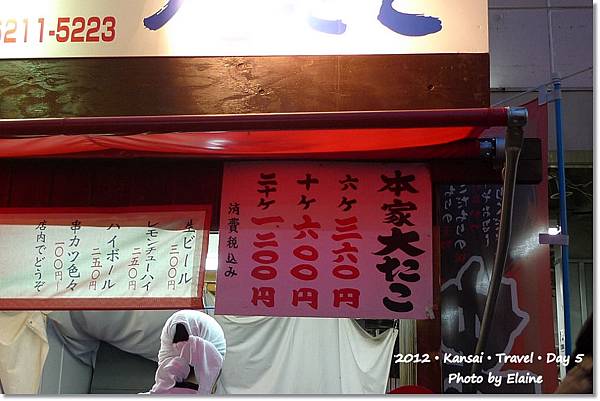 6211-5223
本家大たこ
六ケ三六〇円
十ケ六〇〇円
二十ケ一二〇〇円
消費税込み
生ビール三〇〇円
レモンチューハイ二五〇円
ハイボール二五〇円
串カツ色々一〇〇円ー
店内でどうぞ
2012・Kansai・Travel・Day 5
Photo by Elaine